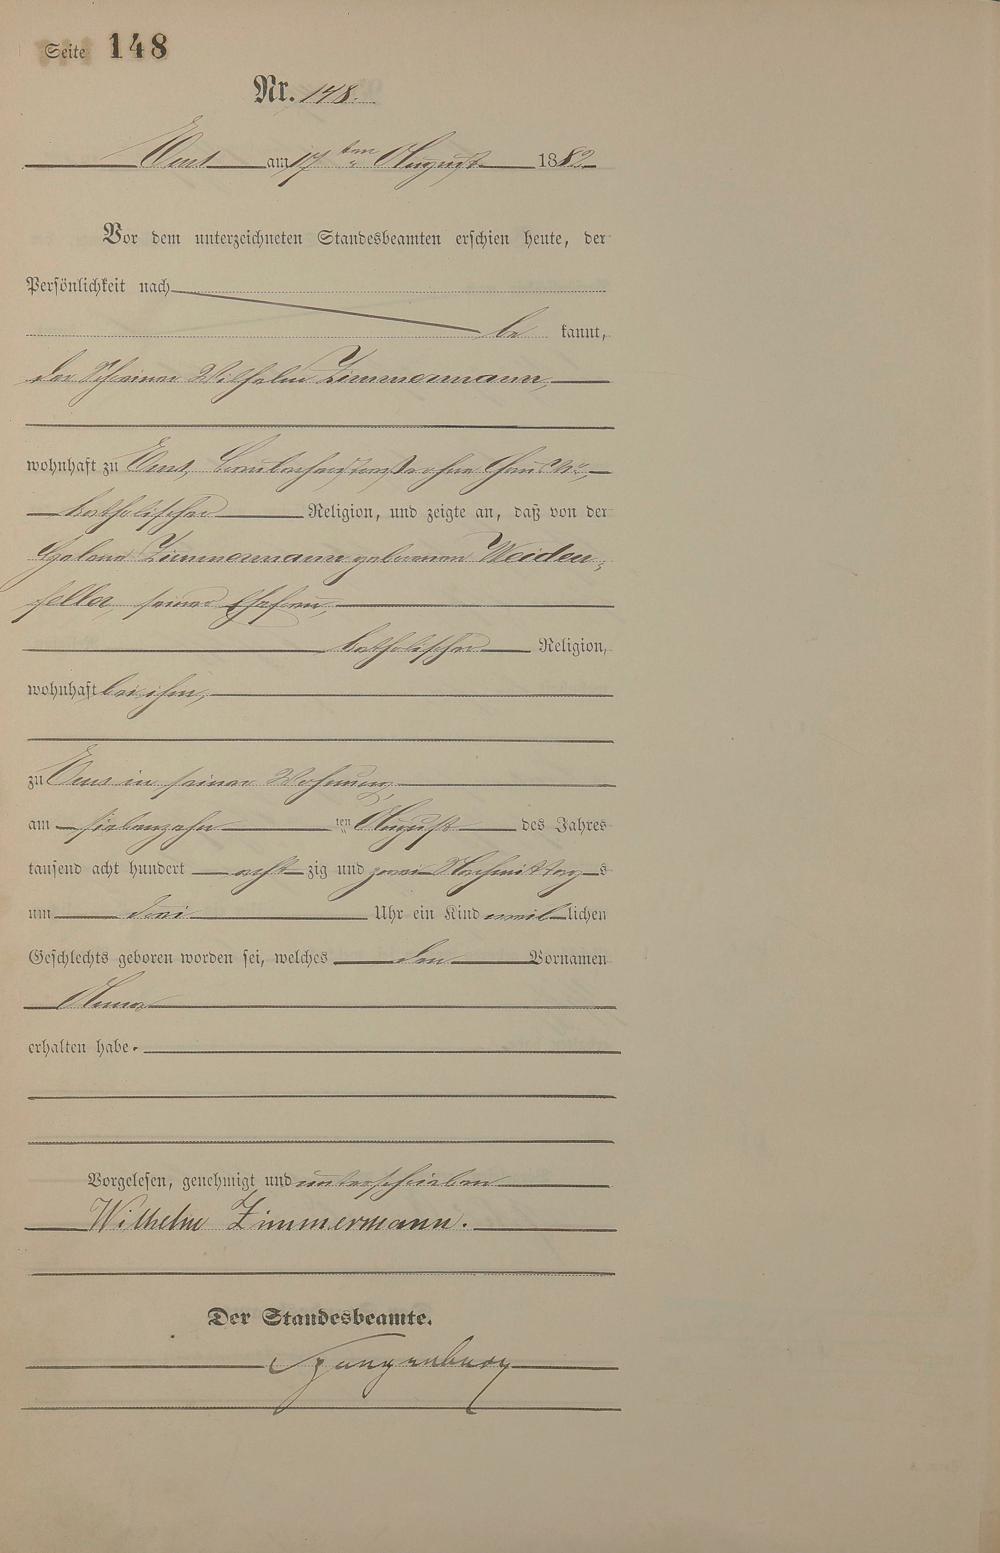 Seite 148
Nr. 148.
Ems am 17ten August 1882
Vor dem unterzeichneten Standesbeamten erschien heute, der
Persönlichkeit nach
be kannt,
der Schreiner Wilhelm Zimmermann,
wohnhaft zu Ems,
katholischer Religion, und zeigte an, daß von der
Helene Zimmermann geborenen Weiden-
feller, seiner Ehefrau,
katholischer Religion,
wohnhaft bei ihm,
zu Ems in seiner Wohnung,
am siebenzehn ten August des Jahres
tausend acht hundert acht zig und zwei Nachmittag s
um drei Uhr ein Kind weib lichen
Geschlechts geboren worden sei, welches den Vornamen
Anna
erhalten habe.
Vorgelesen, genehmigt und unterschrieben
Wilhelm Zimmermann.
Der Standesbeamte.